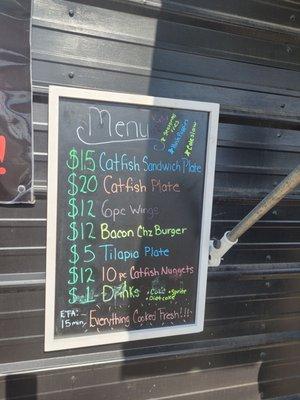 Menu
Coleslaw
$15 Catfish Sandwich Plate
$20 Catfish Plate
$12 6pc Wings
$12 Bacon Chz Burger
$5 Tilapia Plate
$12 10pc Catfish Nuggets
$1 Drinks
ETA:
15min
Everything Cooked Fresh!!!
!